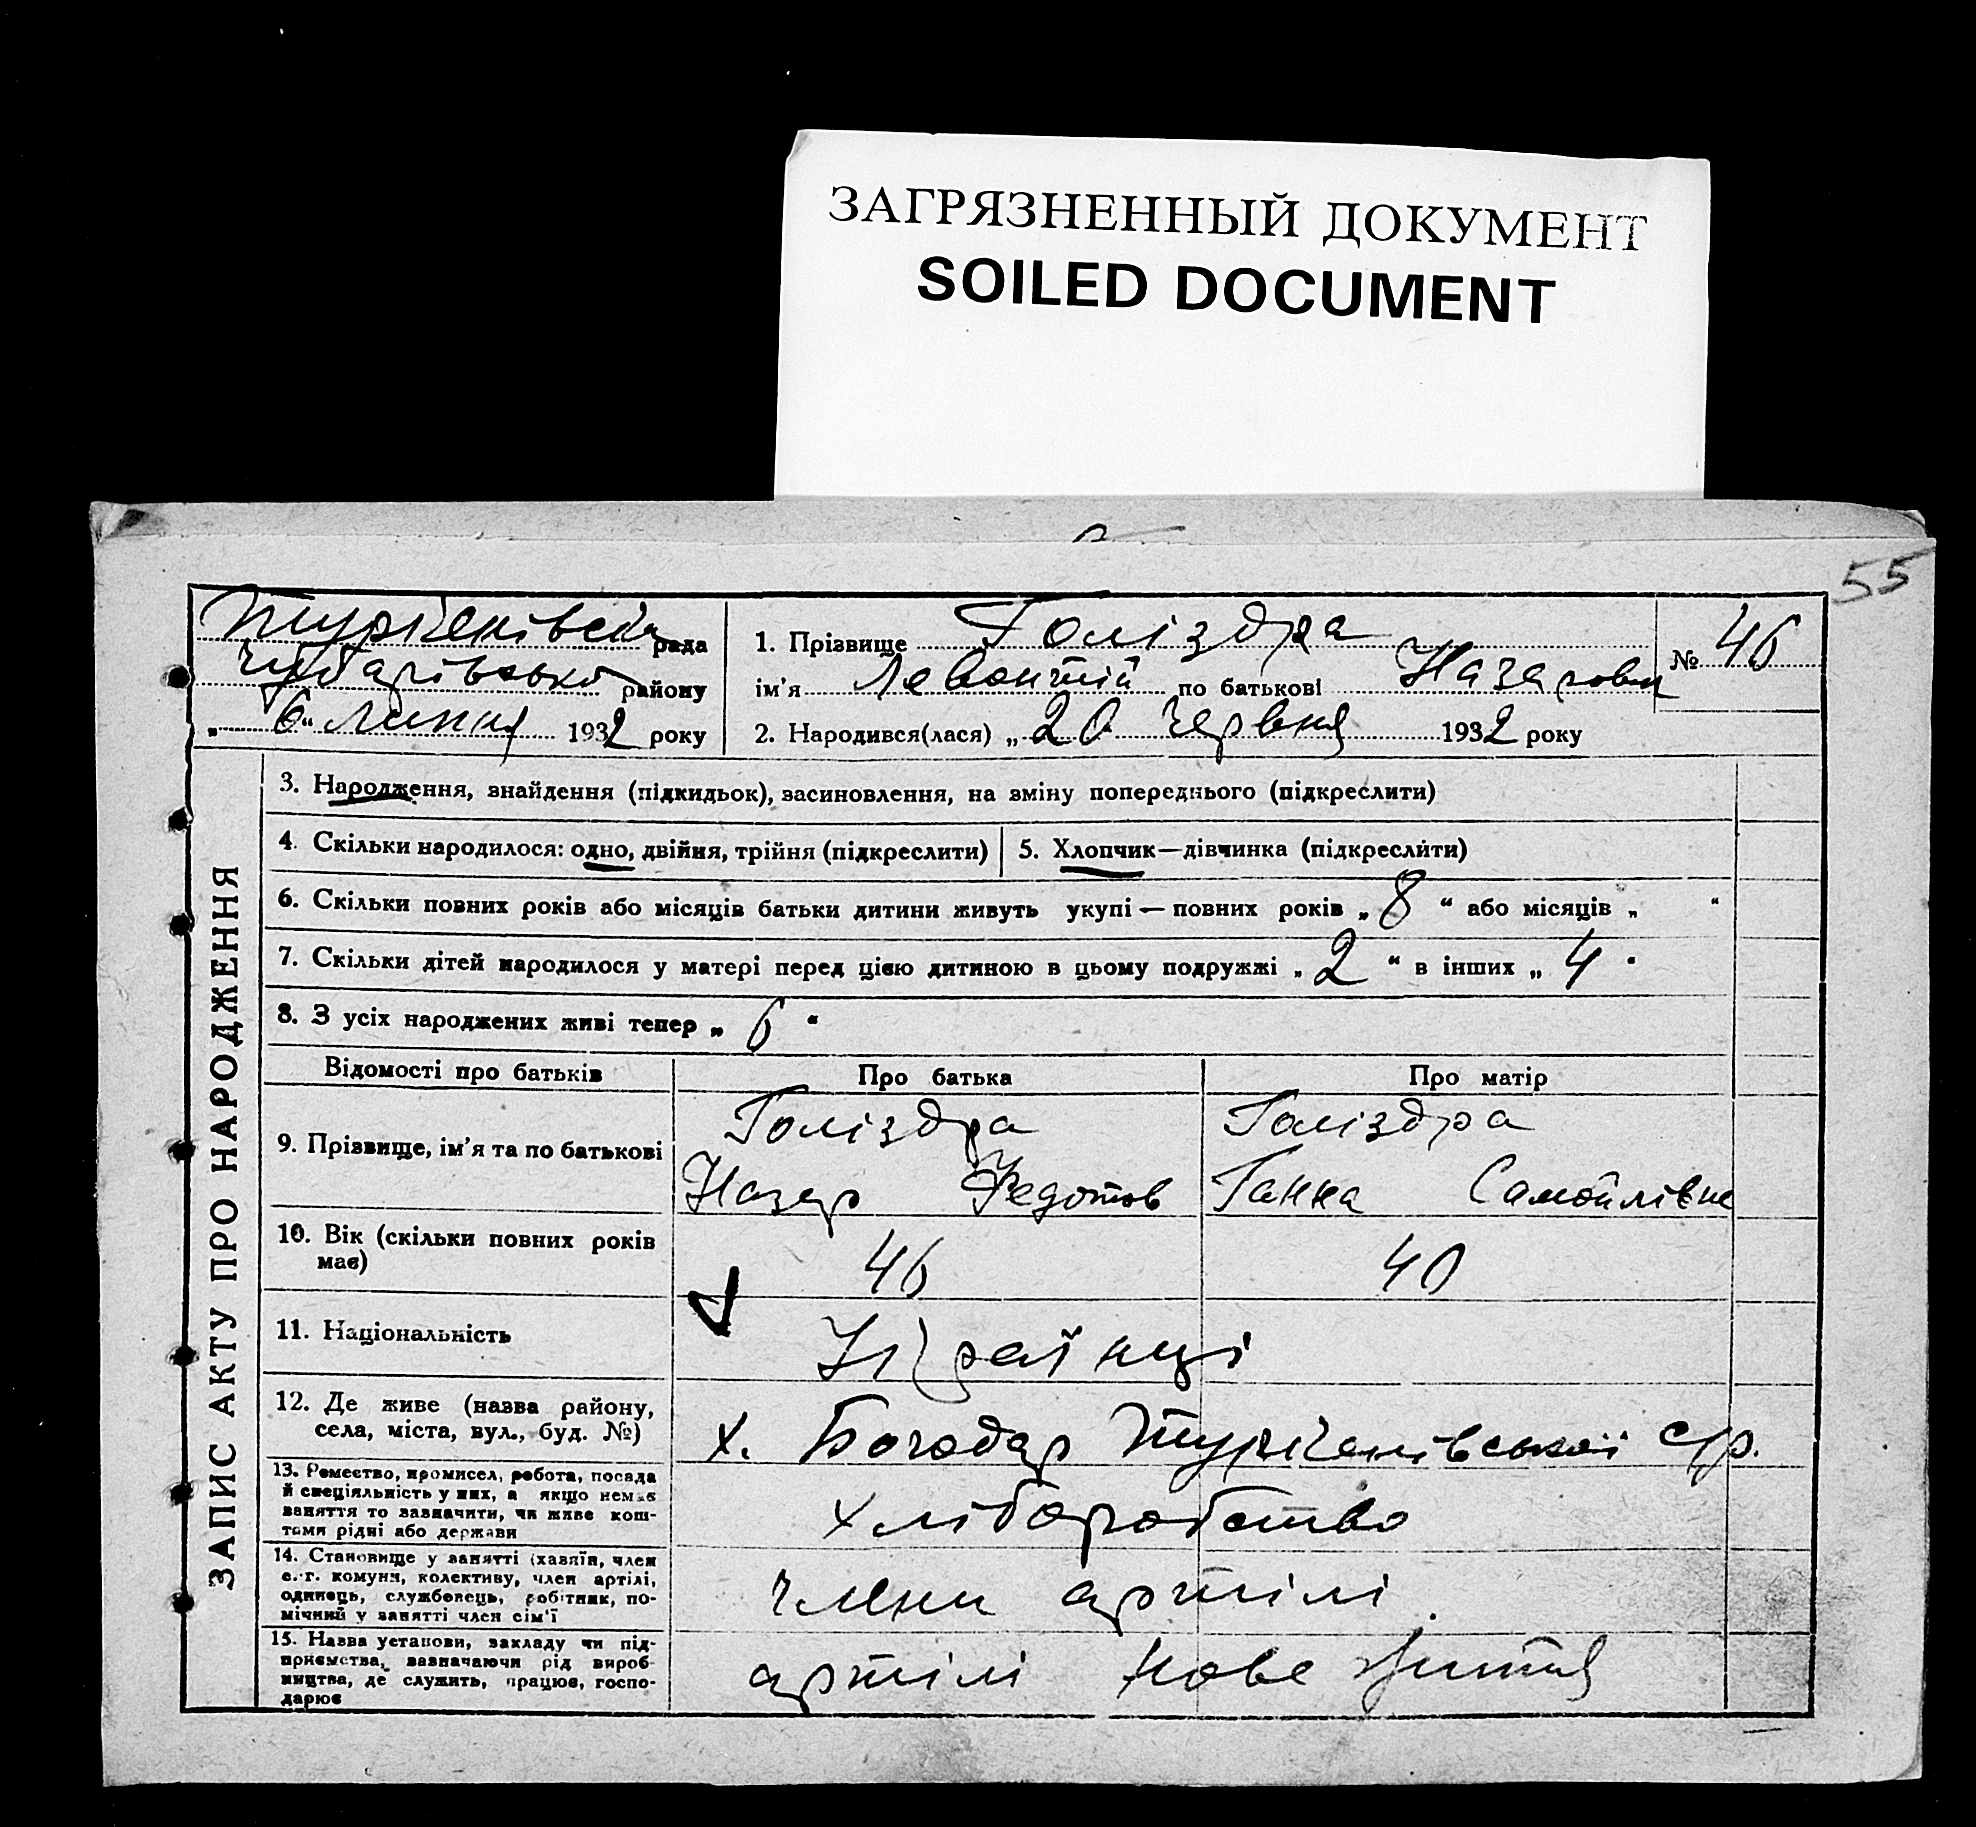 ЗАГРЯЗНЕННЫЙ ДОКУМЕНТ
SOILED DOCUMENT
55
ЗАПИС АКТУ ПРО НАРОДЖЕННЯ
Туркенівська рада
Чубарівського району
„ 6 “ липня 1932 року
1. Прізвище Голіздра
ім'я Левонтій по батькові Назарович
2. Народився(лася) „ 20 червня 1932 року
№ 46
3. Народження, знайдення (підкидьок), засиновлення, на зміну попереднього (підкреслити)
4. Скільки народилося: одно, двійня, трійня (підкреслити)
5. Хлопчик—дівчинка (підкреслити)
6. Скільки повних років або місяців батьки дитини живуть укупі — повних років „ 8 “ або місяців „ “
7. Скільки дітей народилося у матері перед цією дитиною в цьому подружжі „ 2 “ в інших „ 4 "
8. З усіх народжених живі тепер „ 6 “
Відомості про батьків
Про батька
Про матір
9. Прізвище, ім'я та по батькові
Голіздра
Назар Федотов
Голіздра
Ганна Самойлівна
10. Вік (скільки повних років
має)
46
40
11. Національність
Українці
12. Де живе (назва району,
села, міста, вул., буд. №)
х. Богодар Туркенівської с/р.
13. Ремество, промисел, робота, посада
й спеціяльність у них, а якщо немає
заняття то зазначити, чи живе кош-
тами рідні або держави
хліборобство
14. Становище у занятті (хазяїн, член
с.-г. комуни, колективу, член артілі,
одинець, службовець, робітник, по-
мічний у занятті член сім'ї
члени артілі
15. Назва установи, закладу чи під-
приємства, зазначаючи рід вироб-
ництва, де служить, працює, госпо-
дарює
артілі Нове життя